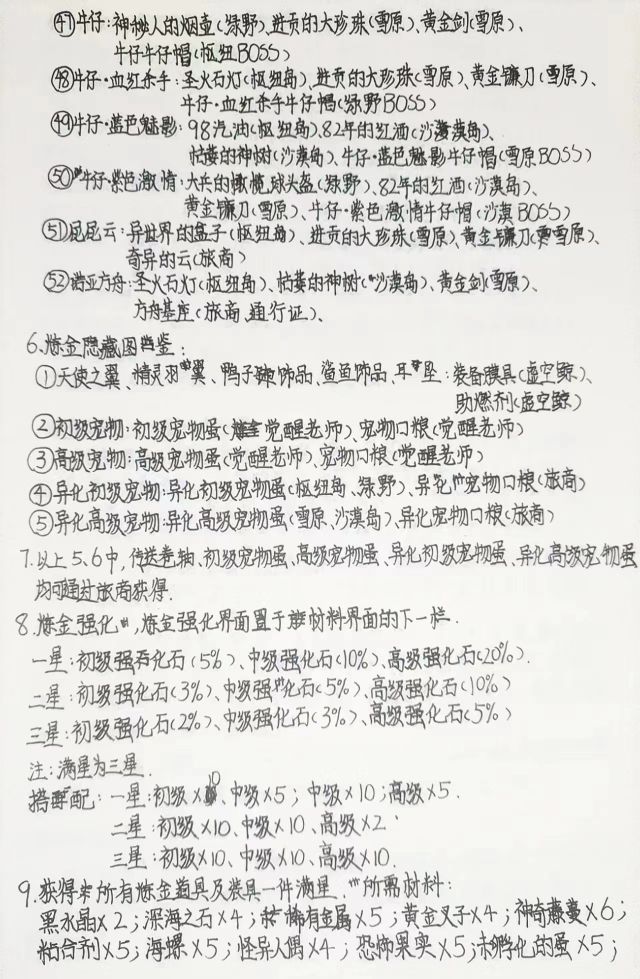 ㊼牛仔:神秘人的烟壶(绿野)、进贡的大珍珠(雪原)、黄金剑(雪原)、
牛仔牛仔帽(枢纽BOSS)
㊽牛仔·血红杀手:圣火石灯(枢纽岛)、进贡的大珍珠(雪原)、黄金镰刀(雪原)、
牛仔·血红杀手牛仔帽(绿野BOSS)
㊾牛仔·蓝色魅影:98汽油(枢纽岛)、82年的红酒(沙漠岛)、
枯萎的神树(沙漠岛)、牛仔·蓝色魅影牛仔帽(雪原BOSS)
㊿牛仔·紫色激情:大兵的橄榄球头盔(绿野)、82年的红酒(沙漠岛)、
黄金镰刀(雪原)、牛仔·紫色激情牛仔帽(沙漠BOSS)
51昆昆云:异世界的盒子(枢纽岛)、进贡的大珍珠(雪原)、黄金镰刀(雪原)、
奇异的云(旅商)
52诺亚方舟:圣火石灯(枢纽岛)、枯萎的神树(沙漠岛)、黄金剑(雪原)、
方舟基座(旅商、通行证)、
6、炼金隐藏图鉴:
①天使之翼、精灵羽翼、鸭子饰品、鲨鱼饰品、耳坠:装备模具(虚空鲸)、
助燃剂(虚空鲸)
②初级宠物:初级宠物蛋(觉醒老师)、宠物口粮(觉醒老师)
③高级宠物:高级宠物蛋(觉醒老师)、宠物口粮(觉醒老师)
④异化初级宠物:异化初级宠物蛋(枢纽岛、绿野)、异化宠物口粮(旅商)
⑤异化高级宠物:异化高级宠物蛋(雪原、沙漠岛)、异化宠物口粮(旅商)
7.以上5、6中,传送卷轴、初级宠物蛋、高级宠物蛋、异化初级宠物蛋、异化高级宠物蛋
均可通过旅商获得.
8.炼金强化,炼金强化界面置于材料界面的下一栏.
一星:初级强化石(5%)、中级强化石(10%)、高级强化石(20%).
二星:初级强化石(3%)、中级强化石(5%)、高级强化石(10%)
三星:初级强化石(2%)、中级强化石(3%)、高级强化石(5%)
注:满星为三星.
搭配:一星:初级×10、中级×5;中级×10;高级×5.
二星:初级×10、中级×10、高级×2
三星:初级×10、中级×10、高级×10.
9.获得所有炼金道具及装具一件满星所需材料:
黑水晶×2;深海之石×4;稀有金属×5;黄金叉子×4;神奇藤蔓×6;
粘合剂×5;海螺×5;怪异人偶×4;恐怖果实×5;未孵化的蛋×5;